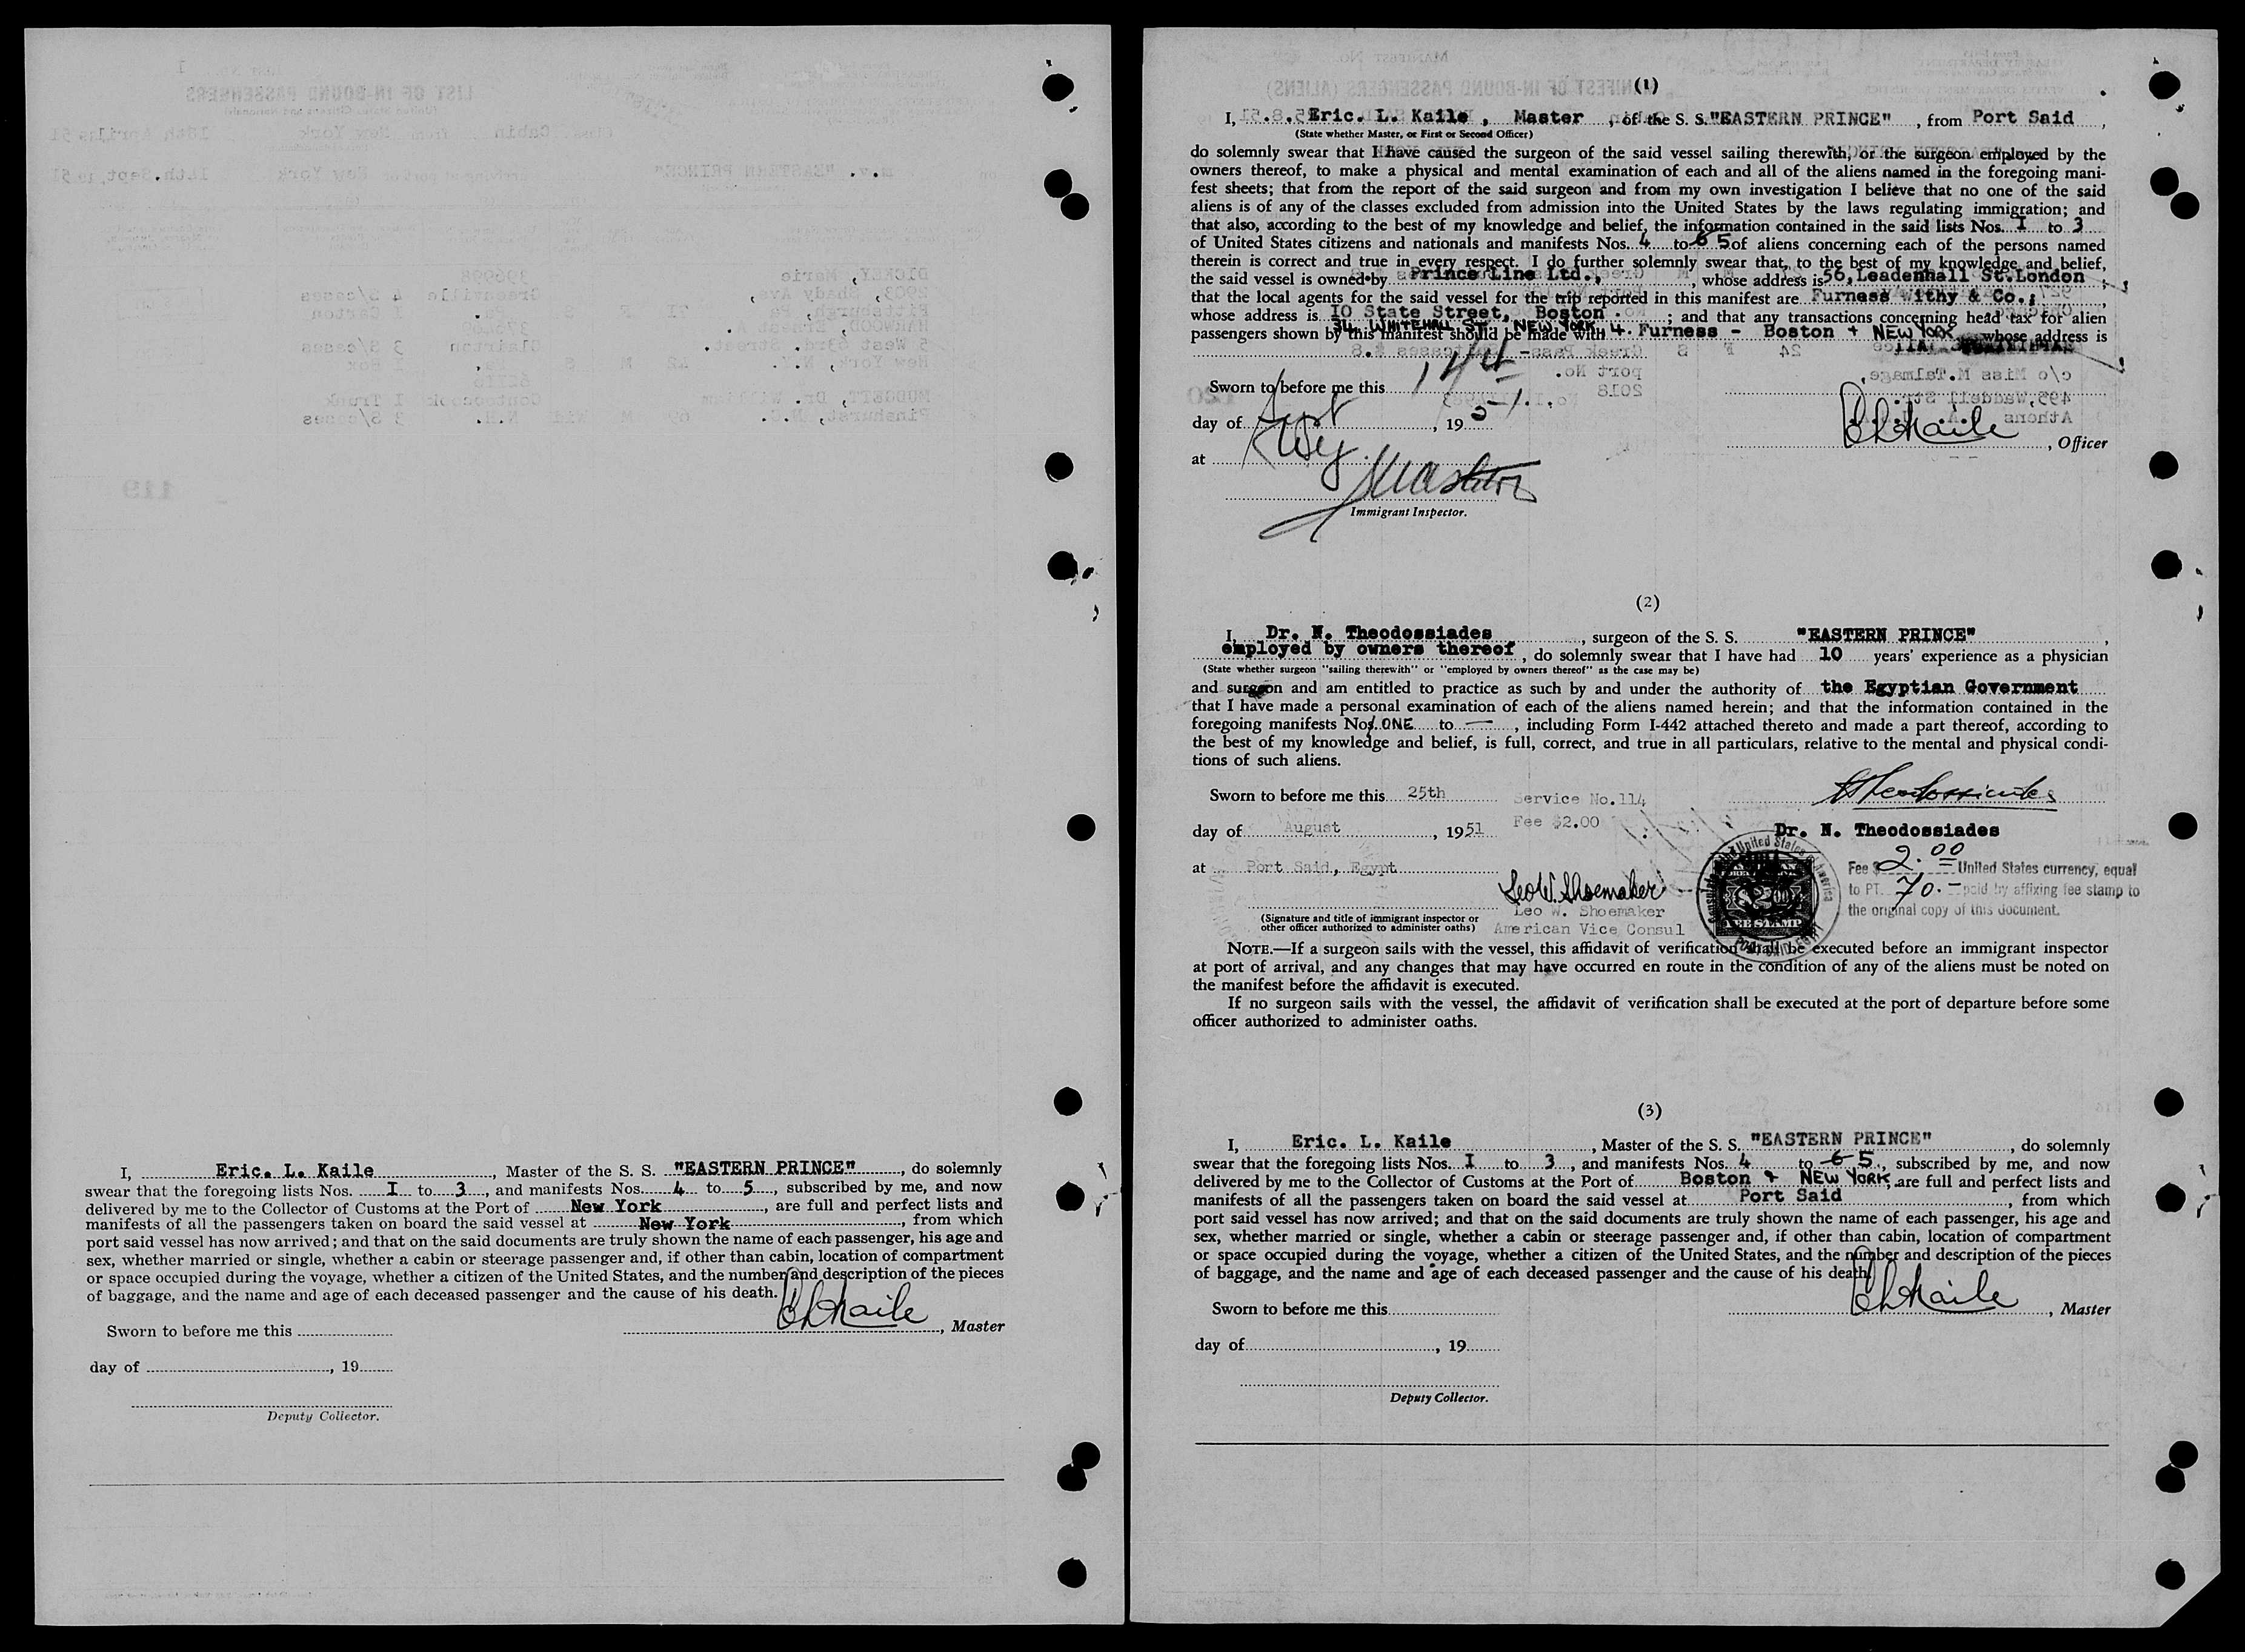 I, Eric. L. Kaile, Master of the S. S. "EASTERN PRINCE", do solemnly
swear that the foregoing lists Nos. I to 3, and manifests Nos. 4 to 5, subscribed by me, and now
delivered by me to the Collector of Customs at the Port of New York, are full and perfect lists and
manifests of all the passengers taken on board the said vessel at New York, from which
port said vessel has now arrived; and that on the said documents are truly shown the name of each passenger, his age and
sex, whether married or single, whether a cabin or steerage passenger and, if other than cabin, location of compartment
or space occupied during the voyage, whether a citizen of the United States, and the number and description of the pieces
of baggage, and the name and age of each deceased passenger and the cause of his death.
ELKaile
Sworn to before me this
, Master
day of , 19
Deputy Collector.
(1)
I, Eric. L. Kaile, Master, of the S. S. "EASTERN PRINCE", from Port Said,
(State whether Master, or First or Second Officer)
do solemnly swear that I have caused the surgeon of the said vessel sailing therewith, or the surgeon employed by the
owners thereof, to make a physical and mental examination of each and all of the aliens named in the foregoing mani-
fest sheets; that from the report of the said surgeon and from my own investigation I believe that no one of the said
aliens is of any of the classes excluded from admission into the United States by the laws regulating immigration; and
that also, according to the best of my knowledge and belief, the information contained in the said lists Nos. I to 3
of United States citizens and nationals and manifests Nos. 4 to 6 5 of aliens concerning each of the persons named
therein is correct and true in every respect. I do further solemnly swear that, to the best of my knowledge and belief,
the said vessel is owned by Prince Line Ltd., whose address is 56, Leadenhall St. London,
that the local agents for the said vessel for the trip reported in this manifest are Furness Withy & Co.,
whose address is 10 State Street, Boston.; and that any transactions concerning head tax for alien
34 WHITEHALL ST. NEW YORK 4.
passengers shown by this manifest should be made with Furness - Boston + NEW YORK whose address is
Sworn to before me this 14th
day of Sept, 1951.
at NY
ELKaile
, Officer
Immigrant Inspector.
(2)
I, Dr. N. Theodossiades, surgeon of the S. S. "EASTERN PRINCE",
employed by owners thereof, do solemnly swear that I have had 10 years' experience as a physician
(State whether surgeon "sailing therewith" or "employed by owners thereof" as the case may be)
and surgeon and am entitled to practice as such by and under the authority of the Egyptian Government
that I have made a personal examination of each of the aliens named herein; and that the information contained in the
foregoing manifests Nos. ONE to —, including Form I-442 attached thereto and made a part thereof, according to
the best of my knowledge and belief, is full, correct, and true in all particulars, relative to the mental and physical condi-
tions of such aliens.
Sworn to before me this 25th
Service No. 114
NTheodossiades
day of August, 1951
Fee $2.00
Dr. N. Theodossiades
at Port Said, Egypt
Fee $ 2.00 United States currency, equal
to PT. 70.- paid by affixing fee stamp to
the original copy of this document.
Leo W. Shoemaker
Leo W. Shoemaker
American Vice Consul
$2.00
FEE STAMP
(Signature and title of immigrant inspector or
other officer authorized to administer oaths)
NOTE.—If a surgeon sails with the vessel, this affidavit of verification shall be executed before an immigrant inspector
at port of arrival, and any changes that may have occurred en route in the condition of any of the aliens must be noted on
the manifest before the affidavit is executed.
If no surgeon sails with the vessel, the affidavit of verification shall be executed at the port of departure before some
officer authorized to administer oaths.
(3)
I, Eric. L. Kaile, Master of the S. S. "EASTERN PRINCE", do solemnly
swear that the foregoing lists Nos. I to 3, and manifests Nos. 4 to 6 5, subscribed by me, and now
delivered by me to the Collector of Customs at the Port of Boston + NEW YORK, are full and perfect lists and
manifests of all the passengers taken on board the said vessel at Port Said, from which
port said vessel has now arrived; and that on the said documents are truly shown the name of each passenger, his age and
sex, whether married or single, whether a cabin or steerage passenger and, if other than cabin, location of compartment
or space occupied during the voyage, whether a citizen of the United States, and the number and description of the pieces
of baggage, and the name and age of each deceased passenger and the cause of his death.
ELKaile
Sworn to before me this
, Master
day of , 19
Deputy Collector.